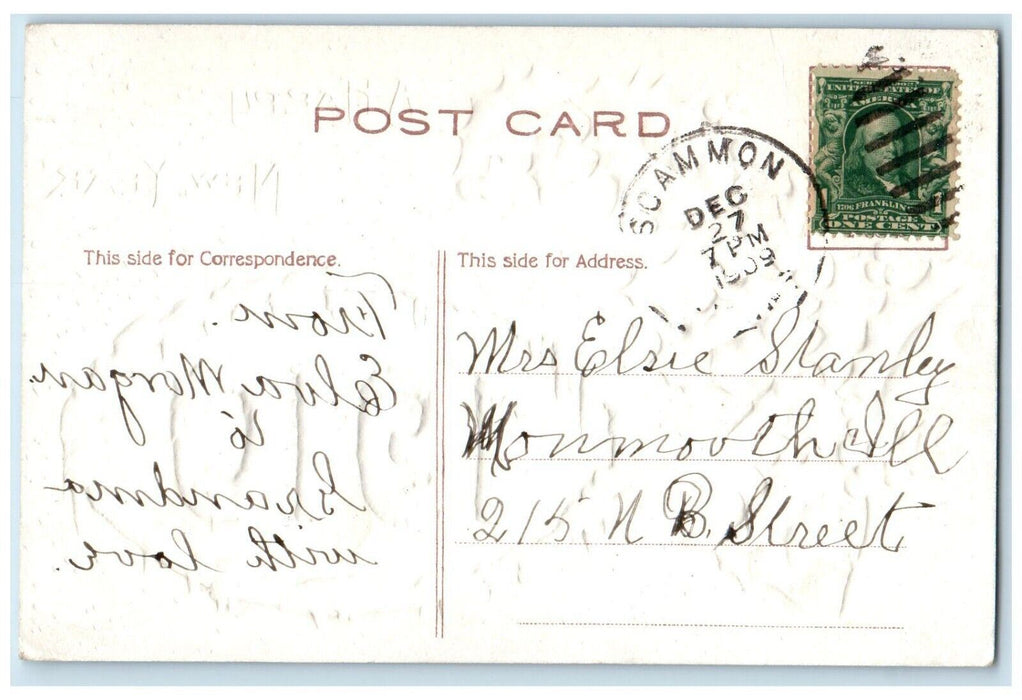 POST CARD
SCAMMON
DEC
27
7 PM
1909
UNITED STATES OF
AMERICA
FRANKLIN
POSTAGE
ONE CENT
This side for Correspondence.
From.
Elva Morgan.
to
Grandma
with love.
This side for Address.
Mrs Elsie Stanley
Monmooth Ill
215 N B. Street